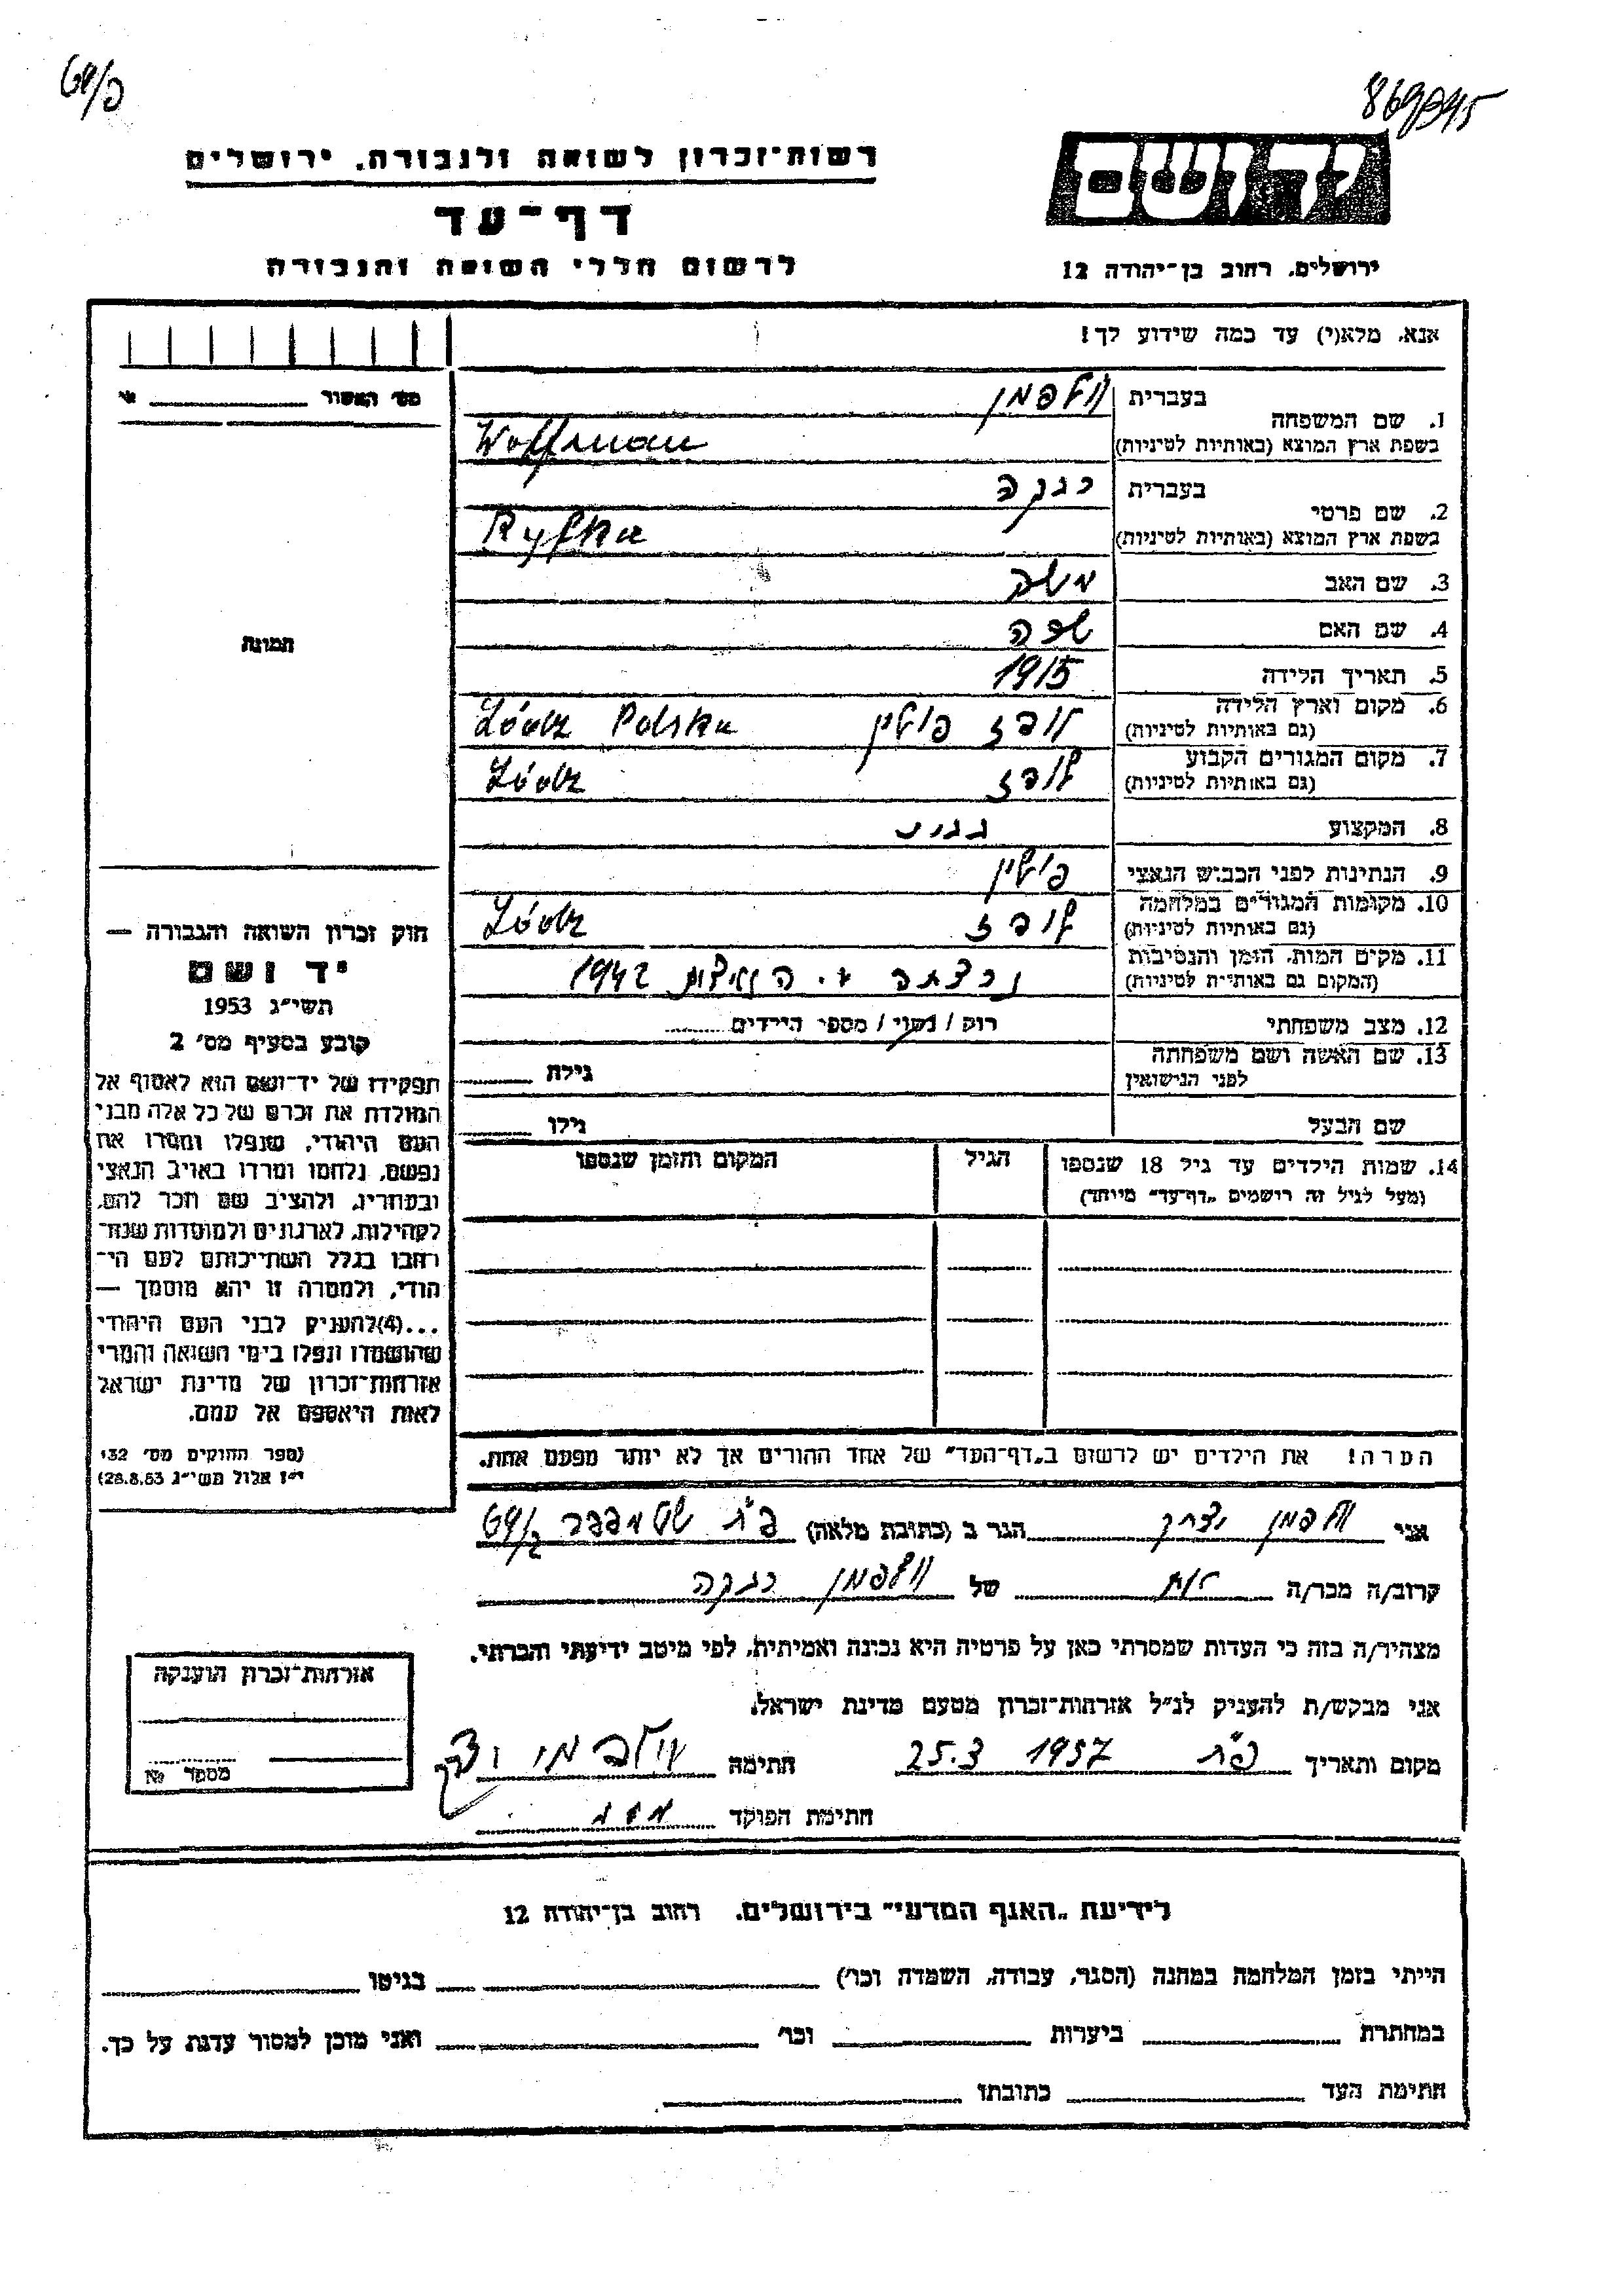 רשות־זכרון לשואה ולגבורה, ירושלים
דף־עד
לרשום חללי השואה והגבורה
יד ושם
ירושלים, רחוב בן־יהודה 12
אנא, מלא(י) עד כמה שידוע לך!
מס׳ האשור
1. שם המשפחה
בעברית וולפמן
בשפת ארץ המוצא (באותיות לטיניות) Wolfman
2. שם פרטי
בעברית רבקה
בשפת ארץ המוצא (באותיות לטיניות) Ryfka
3. שם האב משה
4. שם האם שרה
5. תאריך הלידה 1915
6. מקום וארץ הלידה
(גם באותיות לטיניות) לודז פולין Łódz Polska
7. מקום המגורים הקבוע
(גם באותיות לטיניות) לודז Łódz
8. המקצוע
9. הנתינות לפני הכבוש הנאצי פולין
10. מקומות המגורים במלחמה
(גם באותיות לטיניות) לודז Łódz
11. מקום המות, הזמן והנסיבות
(המקום גם באותיות לטיניות) נרצחה ע. הנאצים 1942
12. מצב משפחתי רוק / נשוי / מספר הילדים
13. שם האשה ושם משפחתה
לפני הנישואין גילה
שם הבעל גילו
14. שמות הילדים עד גיל 18 שנספו
(מעל לגיל זה רושמים „דף־עד״ מיוחד)
הגיל
המקום והזמן שנספו
הערה! את הילדים יש לרשום ב„דף־העד״ של אחד ההורים אך לא יותר מפעם אחת.
תמונה
חוק זכרון השואה והגבורה —
יד ושם
תשי״ג 1953
קובע בסעיף מס׳ 2
תפקידו של יד־ושם הוא לאסוף אל
המולדת את זכרם של כל אלה מבני
העם היהודי, שנפלו ומסרו את
נפשם, נלחמו ומרדו באויב הנאצי
ובעוזריו, ולהציב שם וזכר להם,
לקהילות, לארגונים ולמוסדות שנח־
רבו בגלל השתייכותם לעם הי־
הודי, ולמטרה זו יהא מוסמך —
...(4)להעניק לבני העם היהודי
שהושמדו ונפלו בימי השואה והמרי
אזרחות־זכרון של מדינת ישראל
לאות היאספם אל עמם.
(ספר החוקים מס׳ 132,
י״ז אלול תשי״ג 28.8.53)
אני וולפמן יצחק הגר ב (כתובת מלאה)
קרוב/ה מכר/ה אח של וולפמן רבקה
מצהיר/ה בזה כי העדות שמסרתי כאן על פרטיה היא נכונה ואמיתית, לפי מיטב ידיעתי והכרתי.
אני מבקש/ת להעניק לנ״ל אזרחות־זכרון מטעם מדינת ישראל.
מקום ותאריך 25.3 1957 חתימה וולפמן יצחק
חתימת הפוקד
אזרחות־זכרון הוענקה
מספר №
לידיעת „האגף המדעי״ בירושלים, רחוב בן־יהודה 12
הייתי בזמן המלחמה במחנה (הסגר, עבודה, השמדה וכו׳) בגיטו
במחתרת ביערות וכו׳ ואני מוכן למסור עדות על כך.
חתימת העד כתובתו